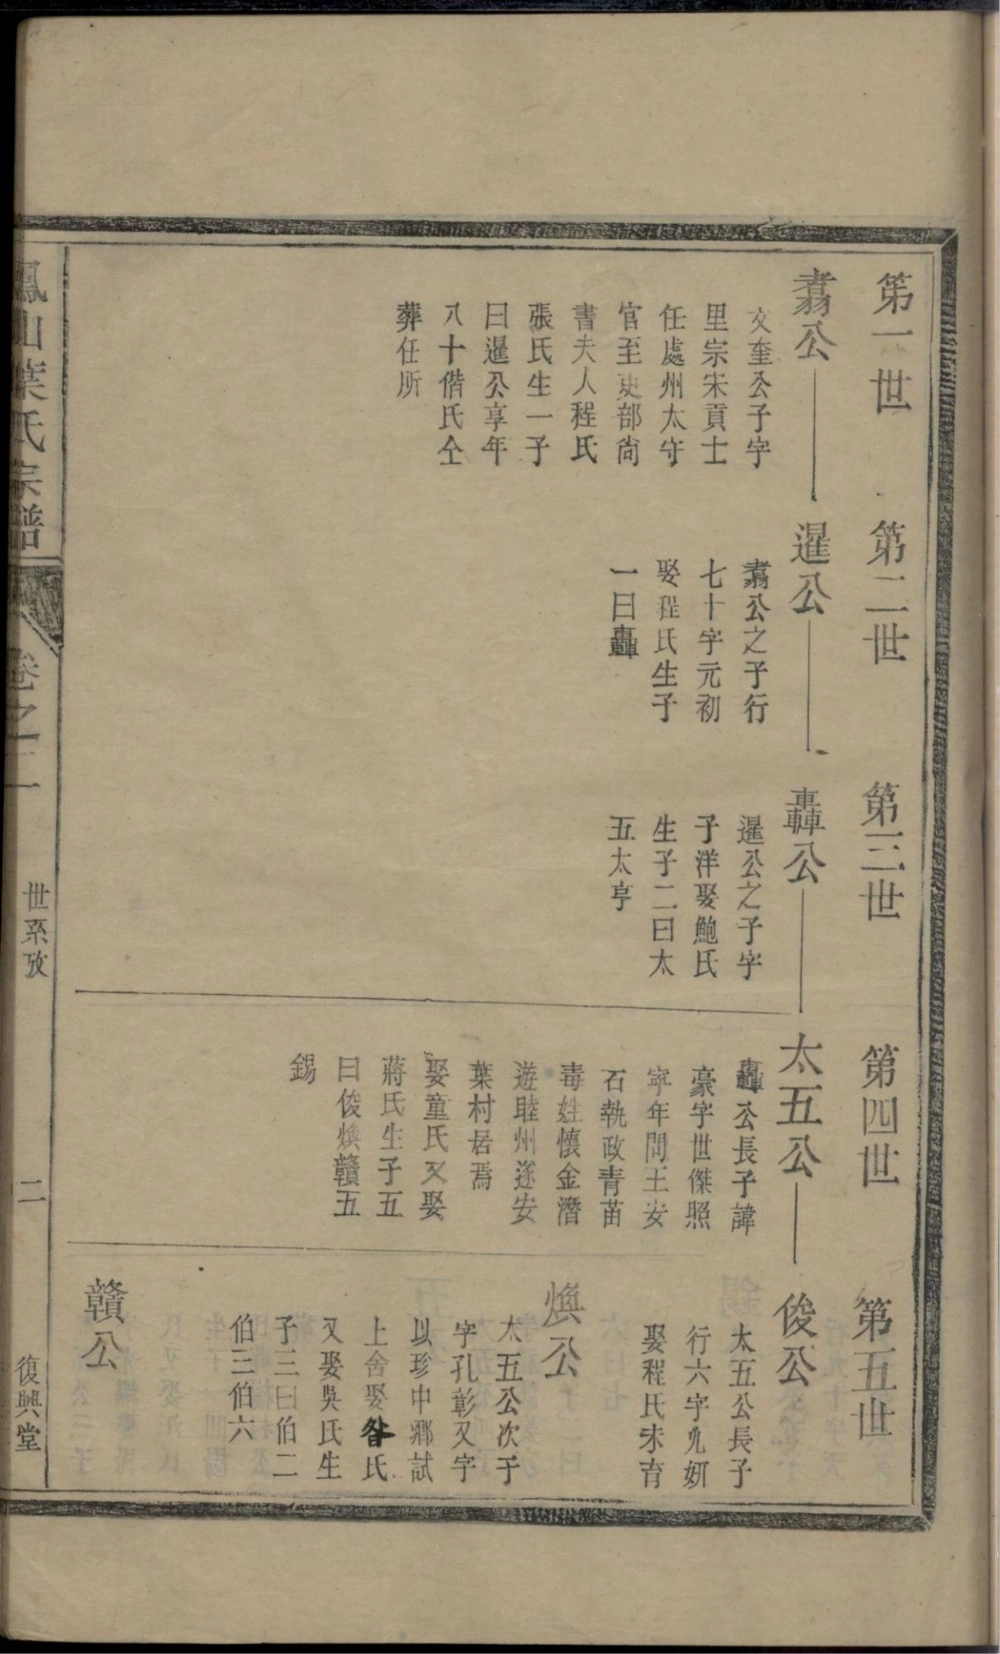 第一世
翥公
文奎公子字
里宗宋貢士
任處州太守
官至吏部尚
書夫人程氏
張氏生一子
曰暹公享年
八十偕氏仝
葬任所
第二世
暹公
翥公之子行
七十字元初
娶程氏生子
一曰轟
第三世
轟公
暹公之子字
子洋娶鮑氏
生子二曰太
五太亨
第四世
太五公
轟公長子諱
豪字世傑熙
寧年間王安
石執政青苗
毒姓懷金潛
遊睦州遂安
葉村居焉
娶童氏又娶
蔣氏生子五
曰俊煥贛五
錫
第五世
俊公
太五公長子
行六字九妍
娶程氏未育
煥公
太五公次子
字孔彰又字
以珍中鄉試
上舍娶昝氏
又娶吳氏生
子三曰伯二
伯三伯六
贛公
鳳山葉氏宗譜
卷之二
世系攷
二
復興堂